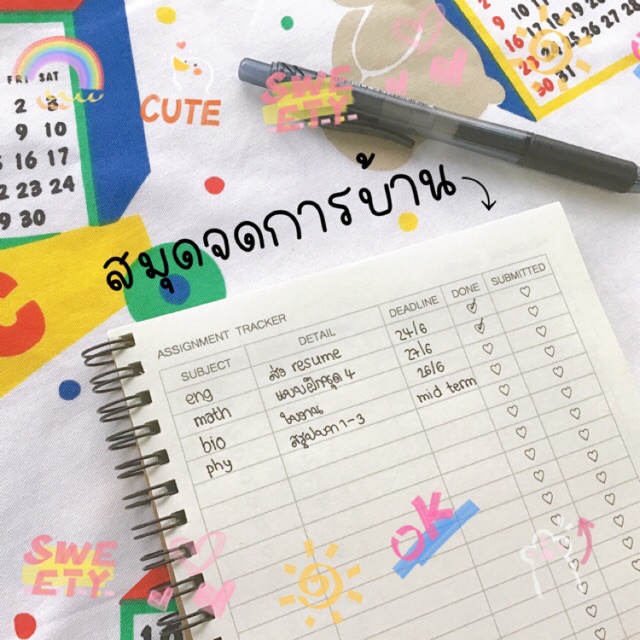 FRI SAT
2 8
9 10
15 16 17
22 23 24
29 30
CUTE
SWE
ETY
9 10
30 31
สมุดจดการบ้าน
ASSIGNMENT TRACKER
SUBJECT DETAIL DEADLINE DONE SUBMITTED
eng ส่ง resume 24/6
math แบบฝึกชุด 4 27/6
bio ใบงาน 26/6
phy สรุปบท 1-3 mid term
OK
SWE
ETY